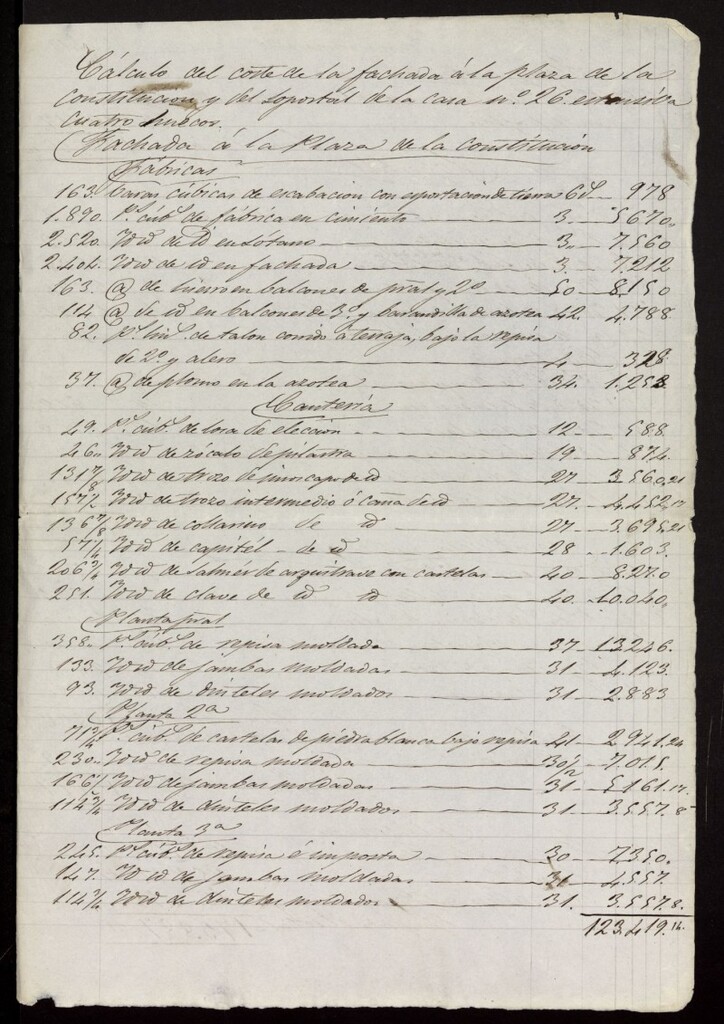 Cálculo del coste de la fachada á la plaza de la
constitucion y del soportál de la casa nº 26.
cuatro huecos.
Fachada á la Plaza de la constitución
Fábricas
163. Varas cúbicas de escabacion con esportacion de tierra 6 978
1.890. Ps. cúbs. de fábrica en cimiento 3. 5670.
2.520. Id id de id en sótano 3. 7.560
2.404. Id id de id en fachada 3. 7.212
163. @ de hierro en balcones de pral y 2º 50 8.150
114 @ de id en balcones de 3º y barandilla de azotea 42. 4.788.
82. Ps. lins. de talon corrido á terraja, bajo la repisa
de 2º y alero 4 328
37. @ de plomo en la azotea 34. 1.258
Cantería
49. Ps. cúbs. de losa de eleccion 12 588.
46. Id id de zócalo de pilastra 19 874.
131 7/8 Id id de trozo de id 27 3.560,21
Id id de trozo intermedio ó caña de id 27. 4.452,17
136 7/8 Id id de collarino de id 27 3.695,21
57 1/4 Id id de capitél de id 28 1.603.
206 3/4 Id id de salmér de arquitrave con cartelas 40 8.270
251. Id id de clave de id id 40. 10.040.
Planta pral
358. Ps. cúbs. de repisa moldada 37 13.246.
133. Id id de jambas moldadas 31 4.123.
93. Id id de dinteles moldados 31 2.883
Planta 2ª
71 3/4 Ps. cúbs. de cartelas de piedra blanca bajo repisa 41 2.941,24
230. Id id de repisa moldada 30 1/2 7.015.
166 1/2 Id id de jambas moldadas 31 5.161.17.
114 3/4 Id id de dinteles moldados 31. 3.557.8
Planta 3ª
245. Ps. cúbs. de repisa é imposta 30 7.350.
147. Id id de jambas moldadas 31 4.557.
114 3/4 Id id de dinteles moldados 31. 3.557.8.
123.419.16.